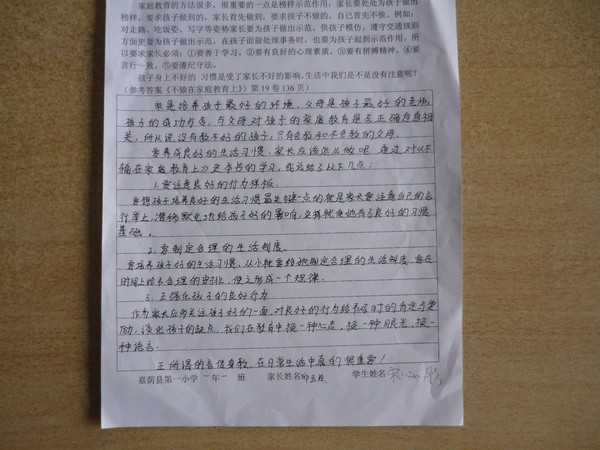 家庭教育的方法很多，很重要的一点是榜样示范作用，家长要处处为孩子做出
榜样，要求孩子做到的，家长首先做到，要求孩子不做的，自己首先不做。例如：
对走路、吃饭、写字等姿势家长要为孩子做出示范，供孩子模仿。遵守交通规则
方面更要为孩子做出示范，在孩子面前处理事务时，也要为孩子起到示范作用，所
以要求家长必须：①要善于学习。②要有良好的心理素质。③要有拼搏精神。④要
言行一致。⑤要遵纪守法。
孩子身上不好的 习惯是受了家长不好的影响，生活中我们是不是没有注意呢？
（参考答案《不输在家庭教育上3》第19卷136页）
家是培养孩子最好的环境，父母是孩子最好的老师，
孩子的成功与否，与父母对孩子的家庭教育是否正确有直接相
关，所从说没有教不好的孩子，只有会教和不会教的父母。
要养成良好的生活习惯，家长应该怎么做呢 通过对《不
输在家庭教育上》这本书的学习，我总结了以下几点：
1. 要注意良好的行为
要想孩子培养良好的生活习惯最关键一点的就是家长要注意自己的言
行举止，潜移默化地给孩子好的影响，这样就使他有了良好的习惯
基础。
2. 要制定合理的生活制度。
要培养孩子好的生活习惯，从小就要给他制定合理的生活制度，要在
时间上给予合理的安排，使之形成一个规律。
3. 正强化孩子的良好行为
作为家长应多关注孩子好的一面，对良好的行为给予及时的肯定与奖
励；淡化孩子的缺点，我们在教育中换一种心态，换一种眼光，换一
种语言。
正所谓的言传身教，在日常生活中真的很重要！
嘉荫县第一小学 一年一 班 家长姓名 学生姓名 宋